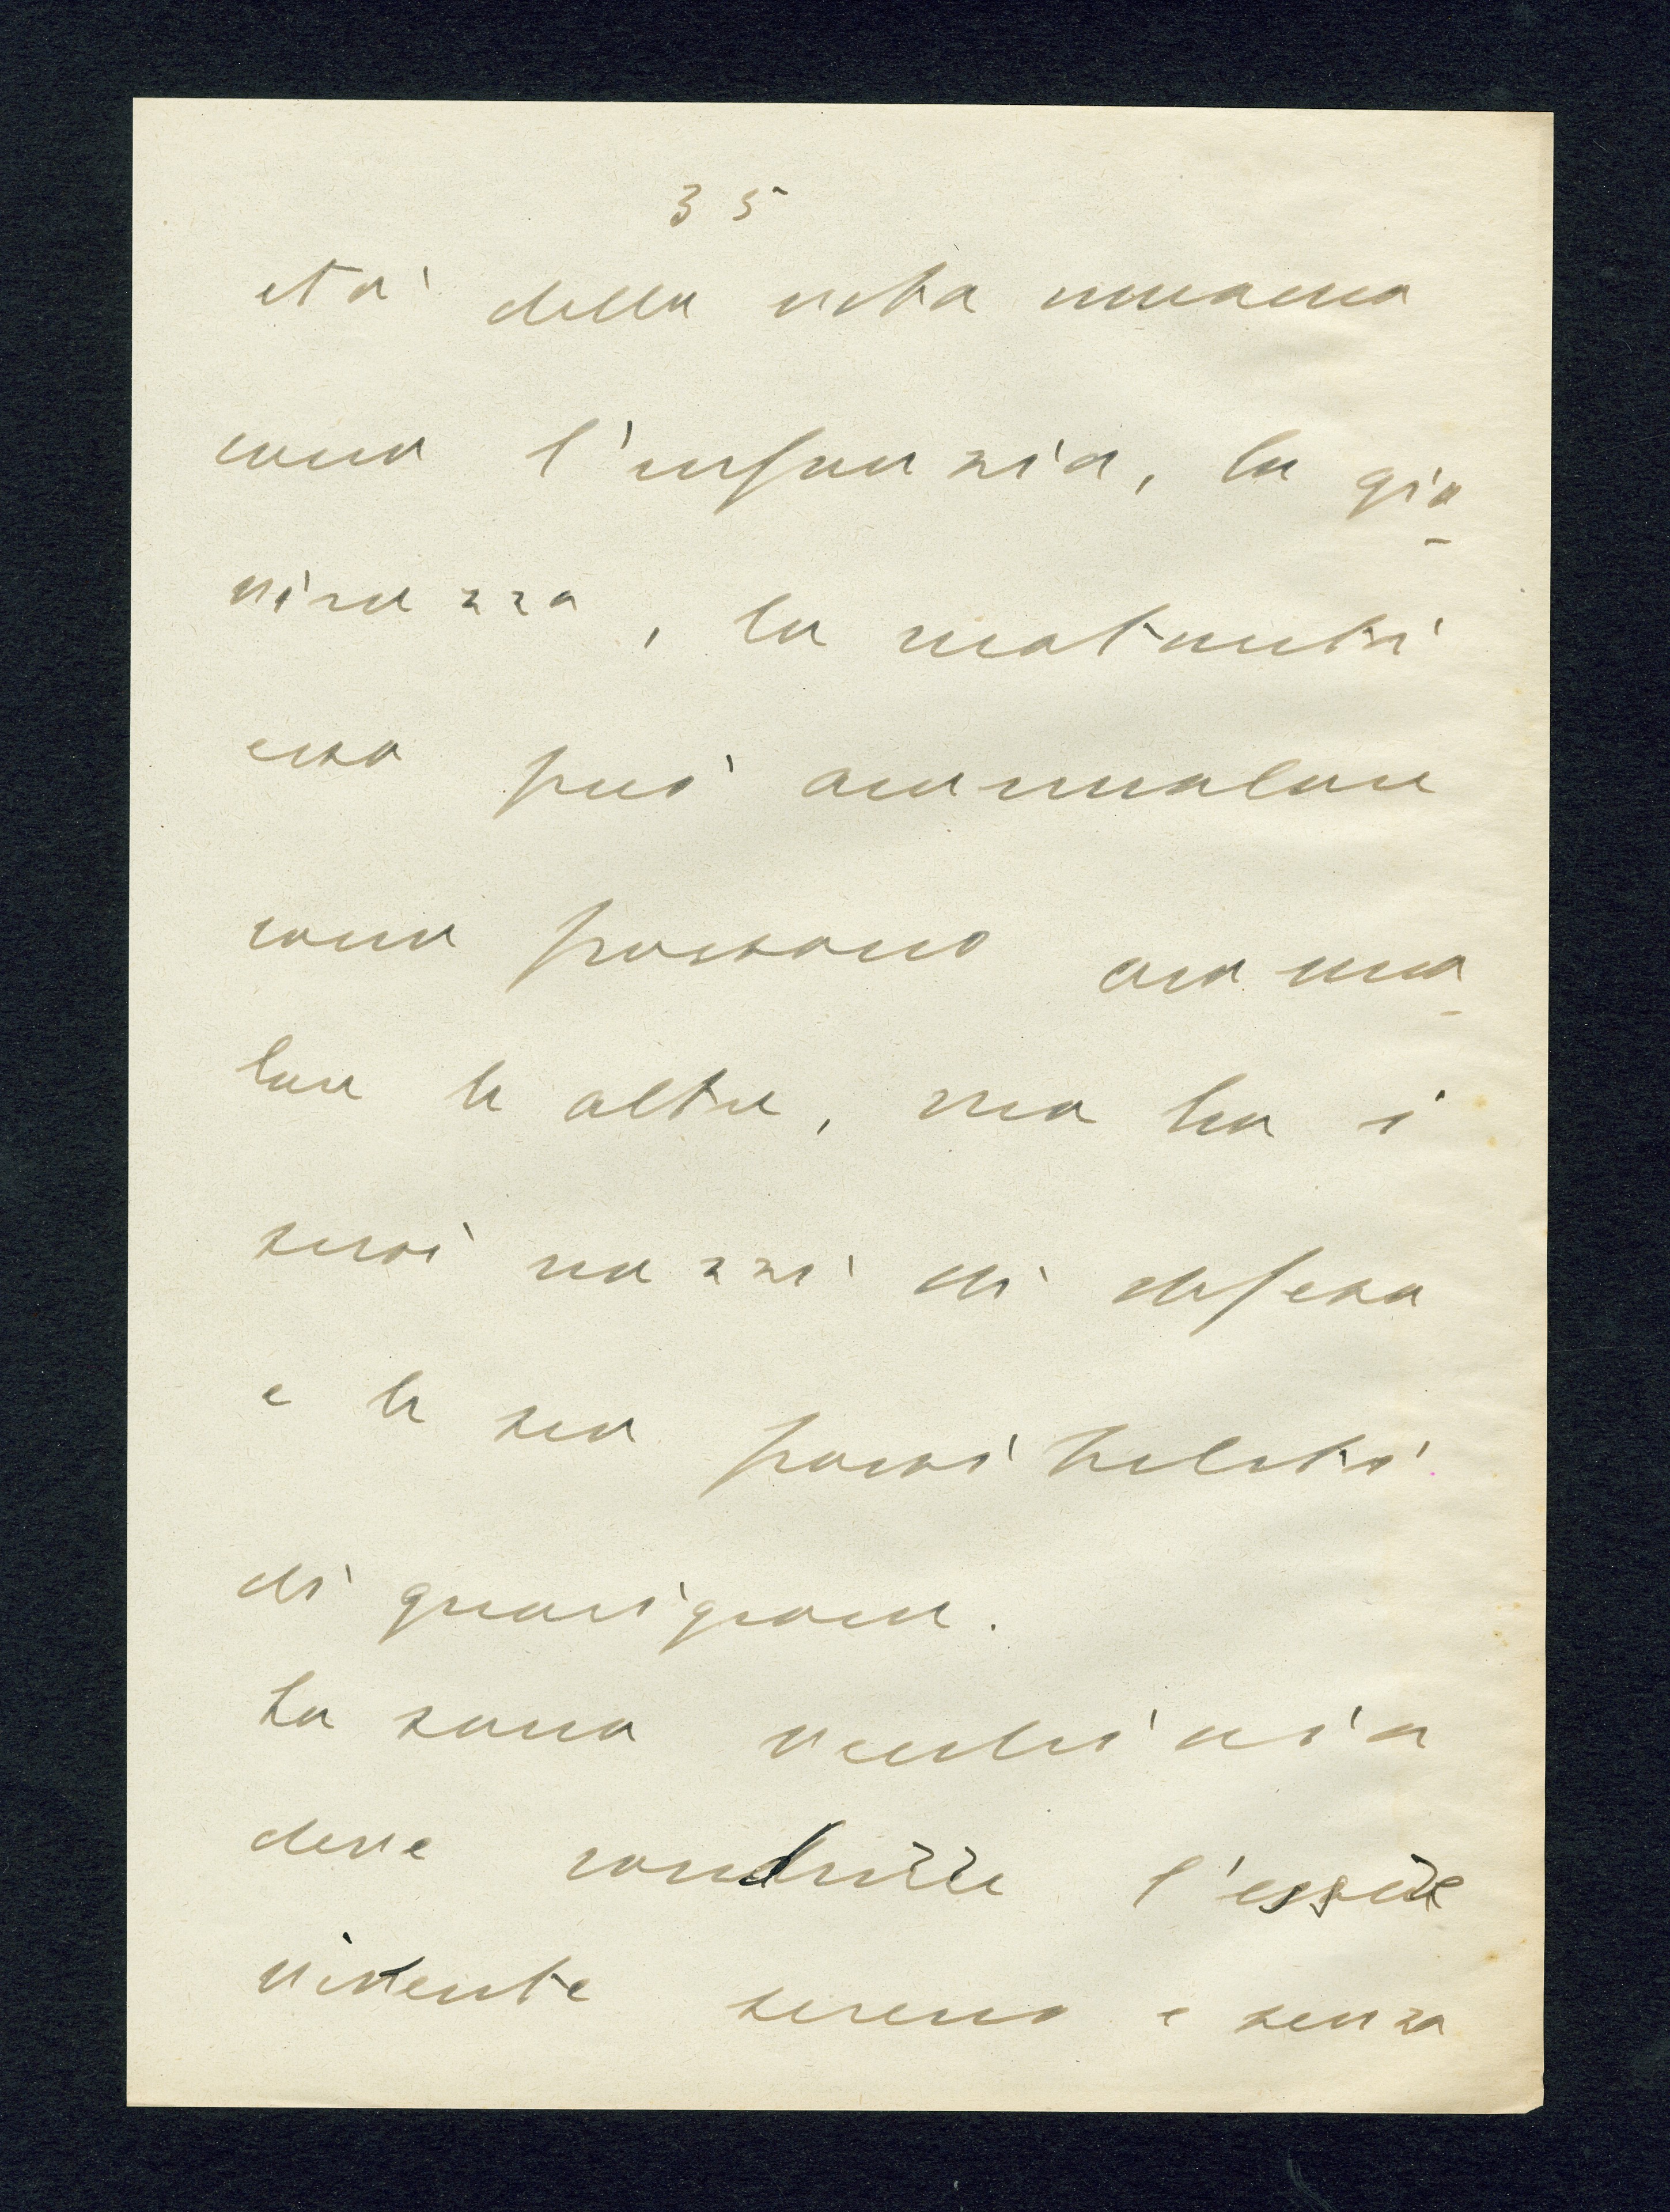 35
età della vita umana
come l'infanzia, la gio-
vinezza, la maturità
essa può ammalare
come possono amma-
lare le altre, ma ha i
suoi mezzi di difesa
e le sue possibilità
di guarigione.
La sana vecchiaia
deve condurre l'essere
vivente sereno e senza